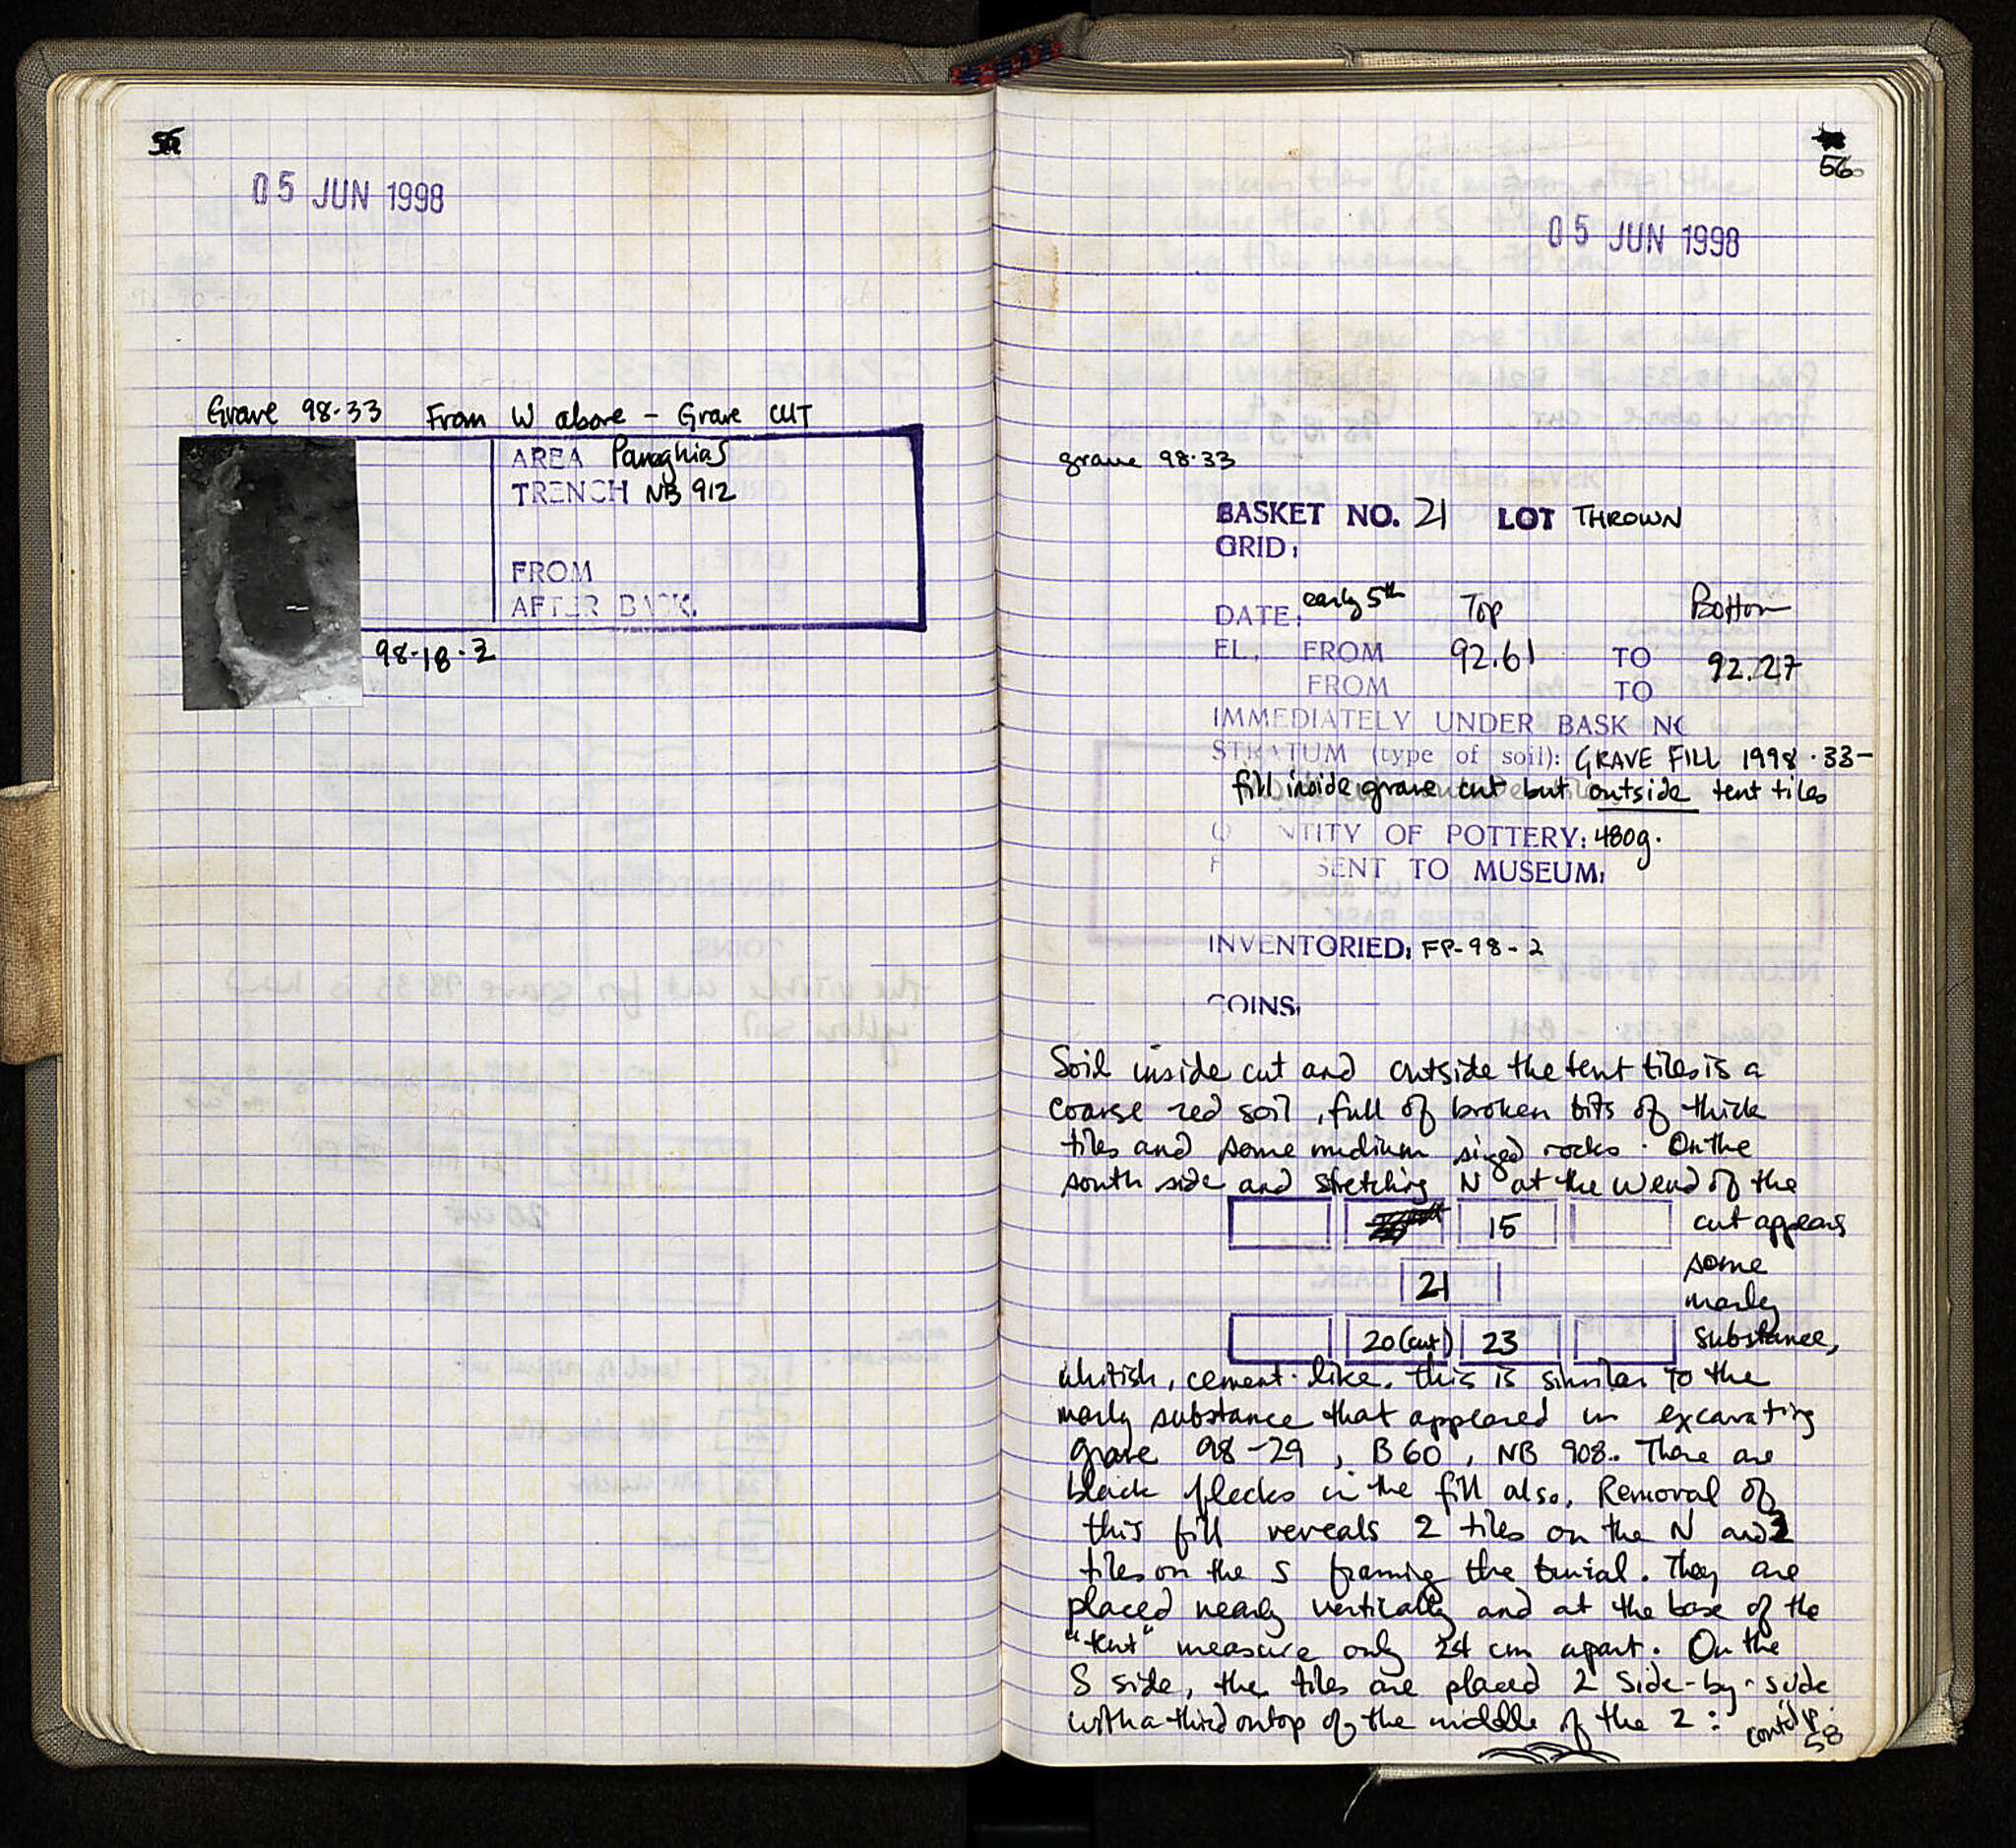 05 JUN 1998
Grave 98-33 From W above - Grave CUT
AREA Panaghias
TRENCH NB 912
FROM
AFTER BASK.
98-18-2
56
05 JUN 1998
grave 98-33
BASKET NO. 21 LOT THROWN
GRID:
DATE: early 5th Top Bottom
EL. FROM 92.61 TO 92.27
FROM TO
IMMEDIATELY UNDER BASK NO
STRATUM (type of soil): GRAVE FILL 1998-33-
fill inside grave cut but outside tent tiles
NTITY OF POTTERY: 480g.
SENT TO MUSEUM:
INVENTORIED: FP-98-2
COINS:
Soil inside cut and outside the tent tiles is a
coarse red soil, full of broken bits of thick
tiles and some medium sized rocks. On the
south side and stretching N at the W end of the
15 cut appears
some
21 marly
20(cut) 23 substance,
whitish, cement-like. This is similar to the
marly substance that appeared in excavating
grave 98-29, B60, NB 908. There are
black flecks in the fill also. Removal of
this fill reveals 2 tiles on the N and 2
tiles on the S framing the burial. They are
placed nearly vertically and at the base of the
"tent" measure only 24 cm apart. On the
S side, the tiles are placed 2 side-by-side
with a third on top of the middle of the 2: cont'd p.
58